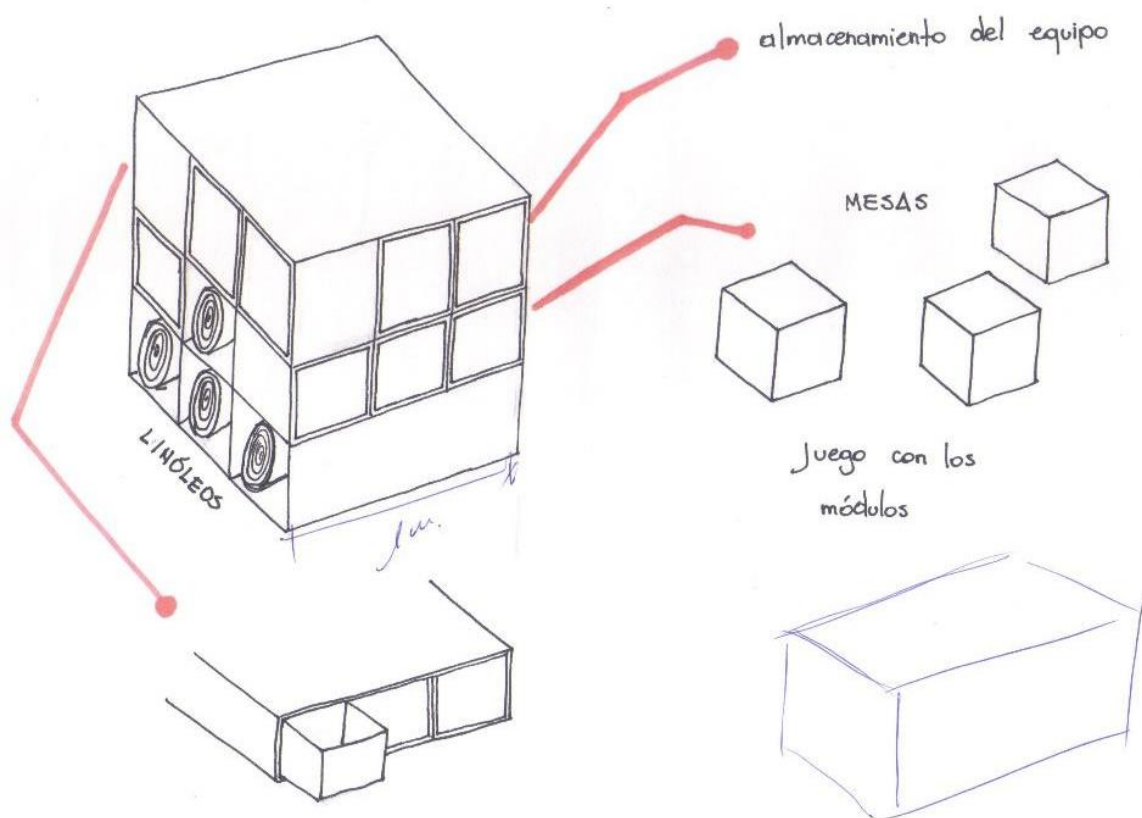 almacenamiento del equipo
MESAS
LINÓLEOS
Juego con los
módulos
1 m.